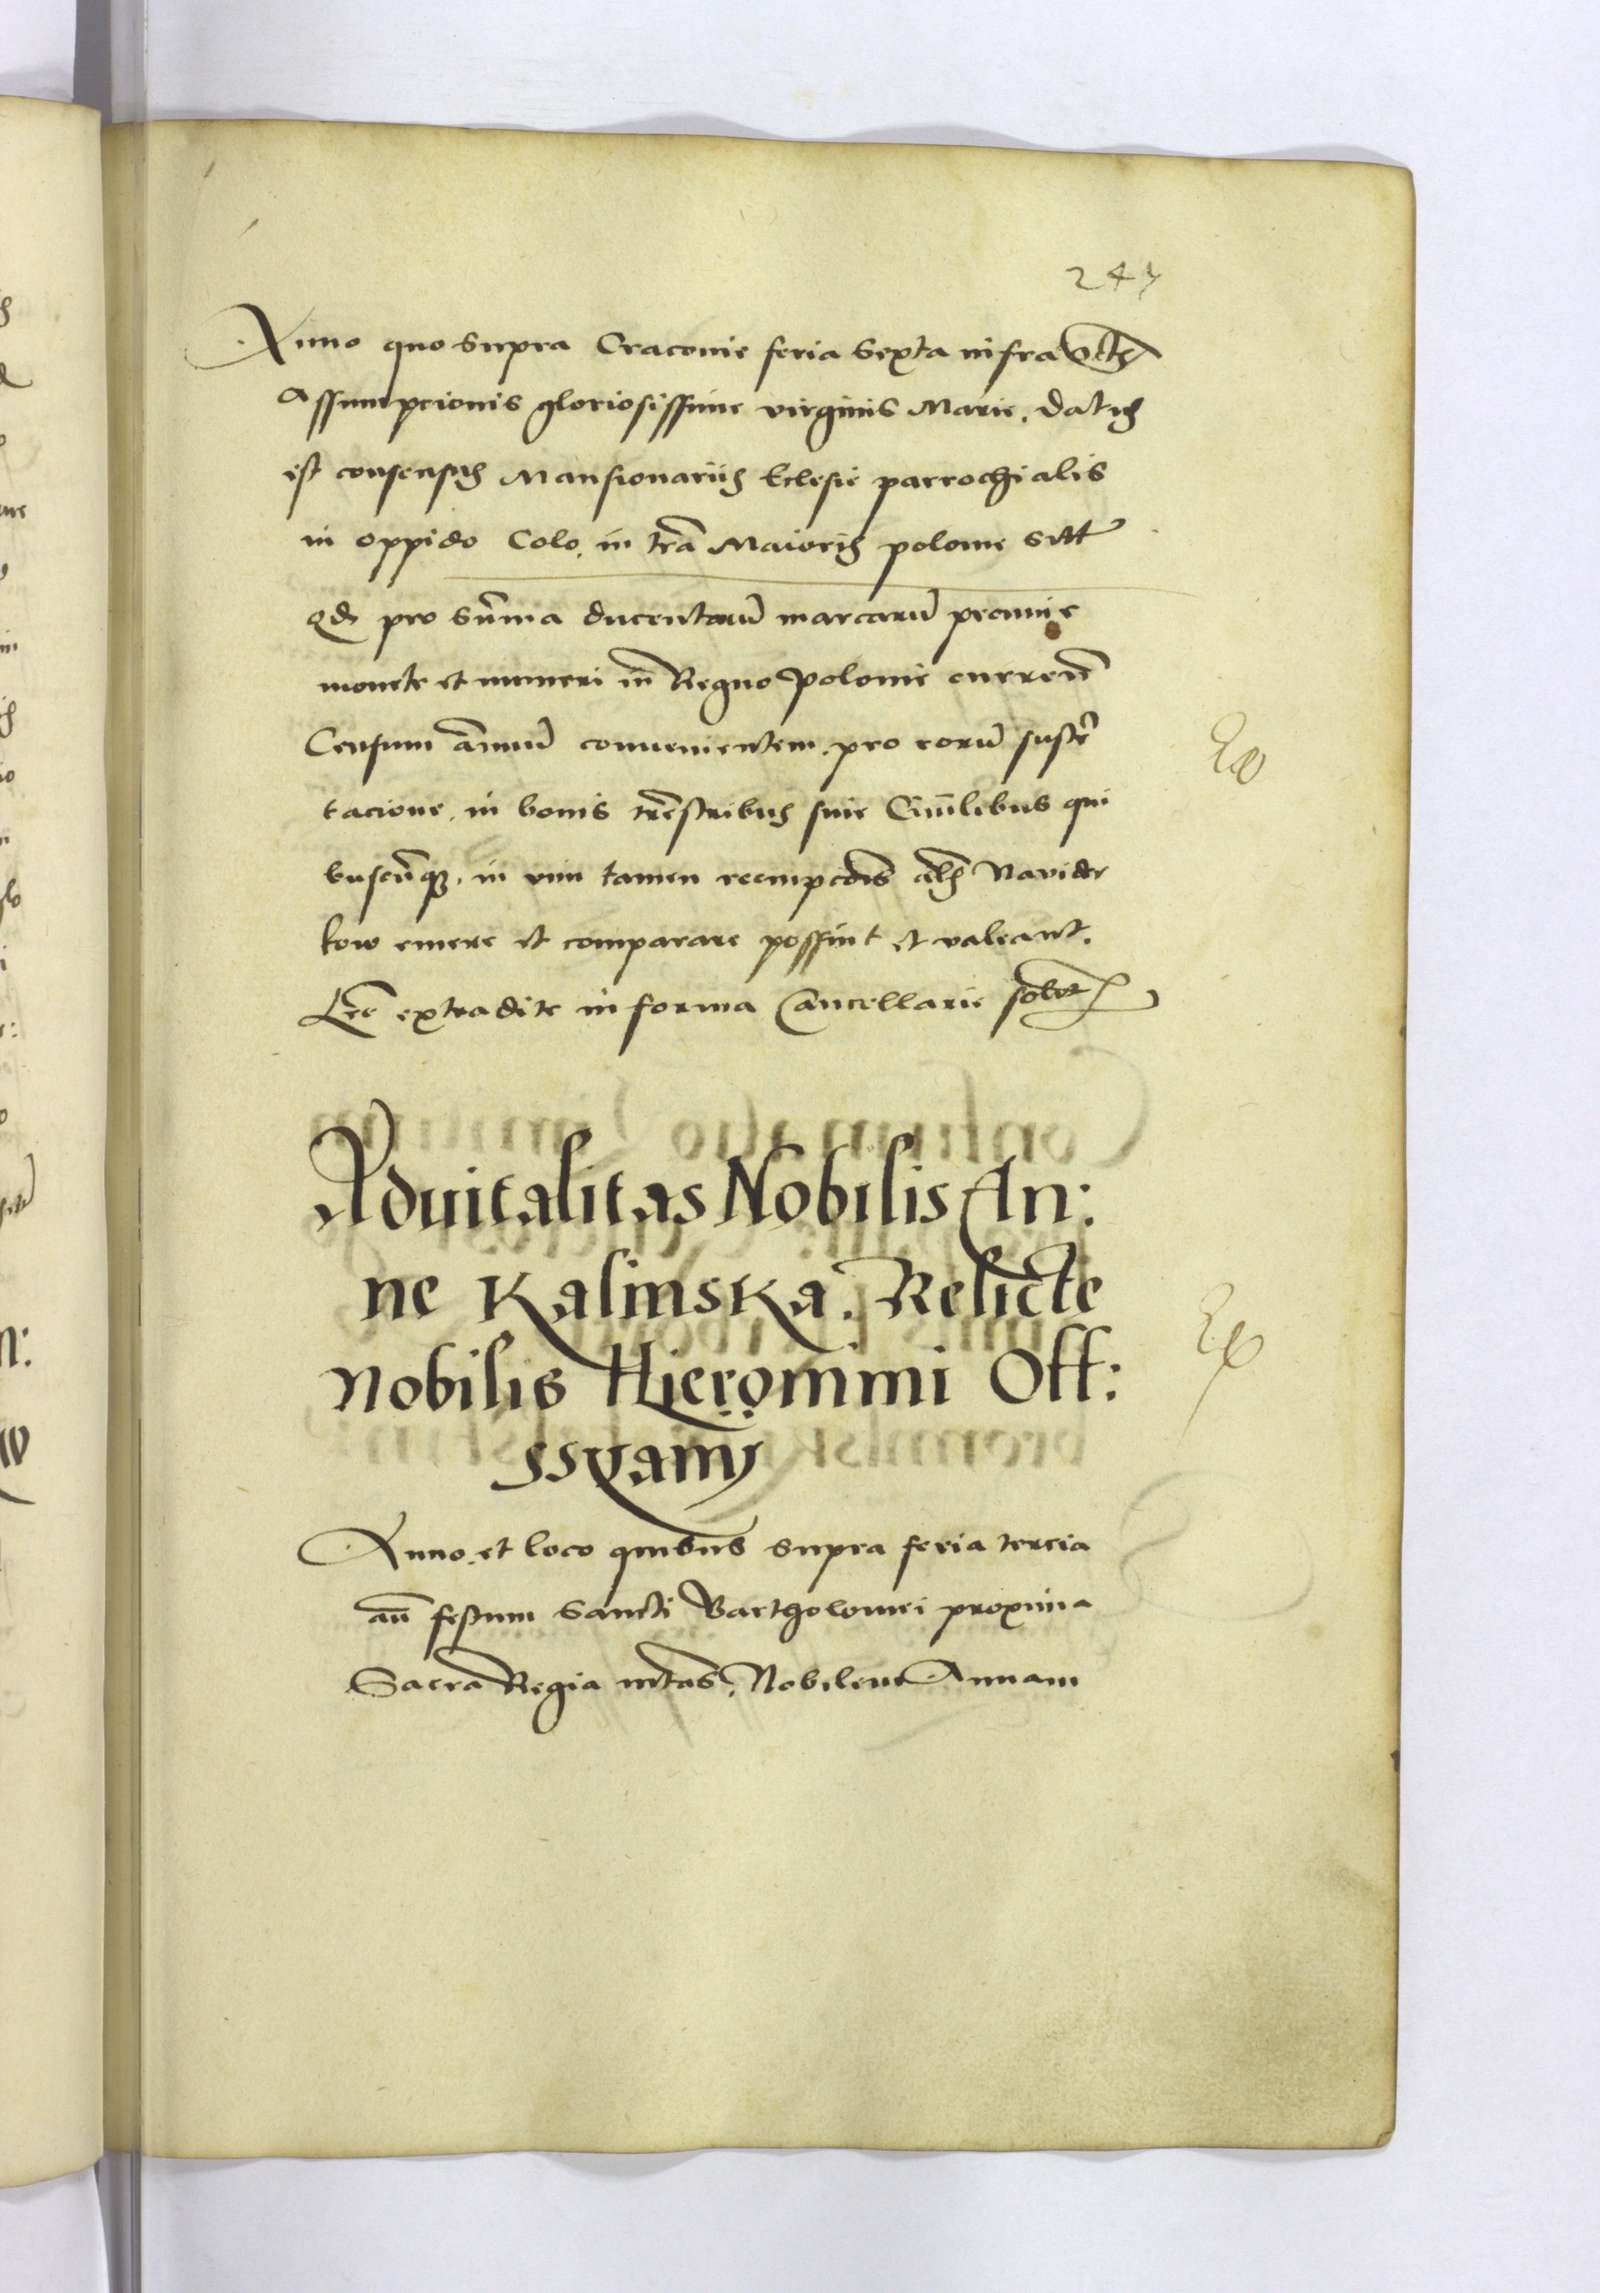 247
Anno quo supra Cracouie feria Sexta infra Octa
Assumpcionis gloriosissime virginis Marie. datus
est consensus Mansionariis Eclesie parrochialis
in oppido Colo, in tra Maioris polonie sitt
qd pro suma ducentaru marcaru pecunie
monete et numeri in Regno Polonie curren
Censum annuu conuenientem, pro eoru susten
tacione, in bonis trestribus siue Ciuilibus qui
buscuqz, in vim tamen reempcois als Navider
kow emere et comparare possint et valeant.
Lre extradite in forma Cancellarie solet
Ex
Aduitalitas Nobilis An:
ne Kalinska. Relicte
Nobilis Hieronimi Off:
ssyamj
Ex
Anno, et loco quibus supra feria tercia
an festum Sancti Bartholomei proxima
Sacra Regia mtas, Nobilem Annam